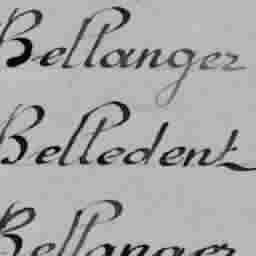 Bellanger
Belledent
Bellanger